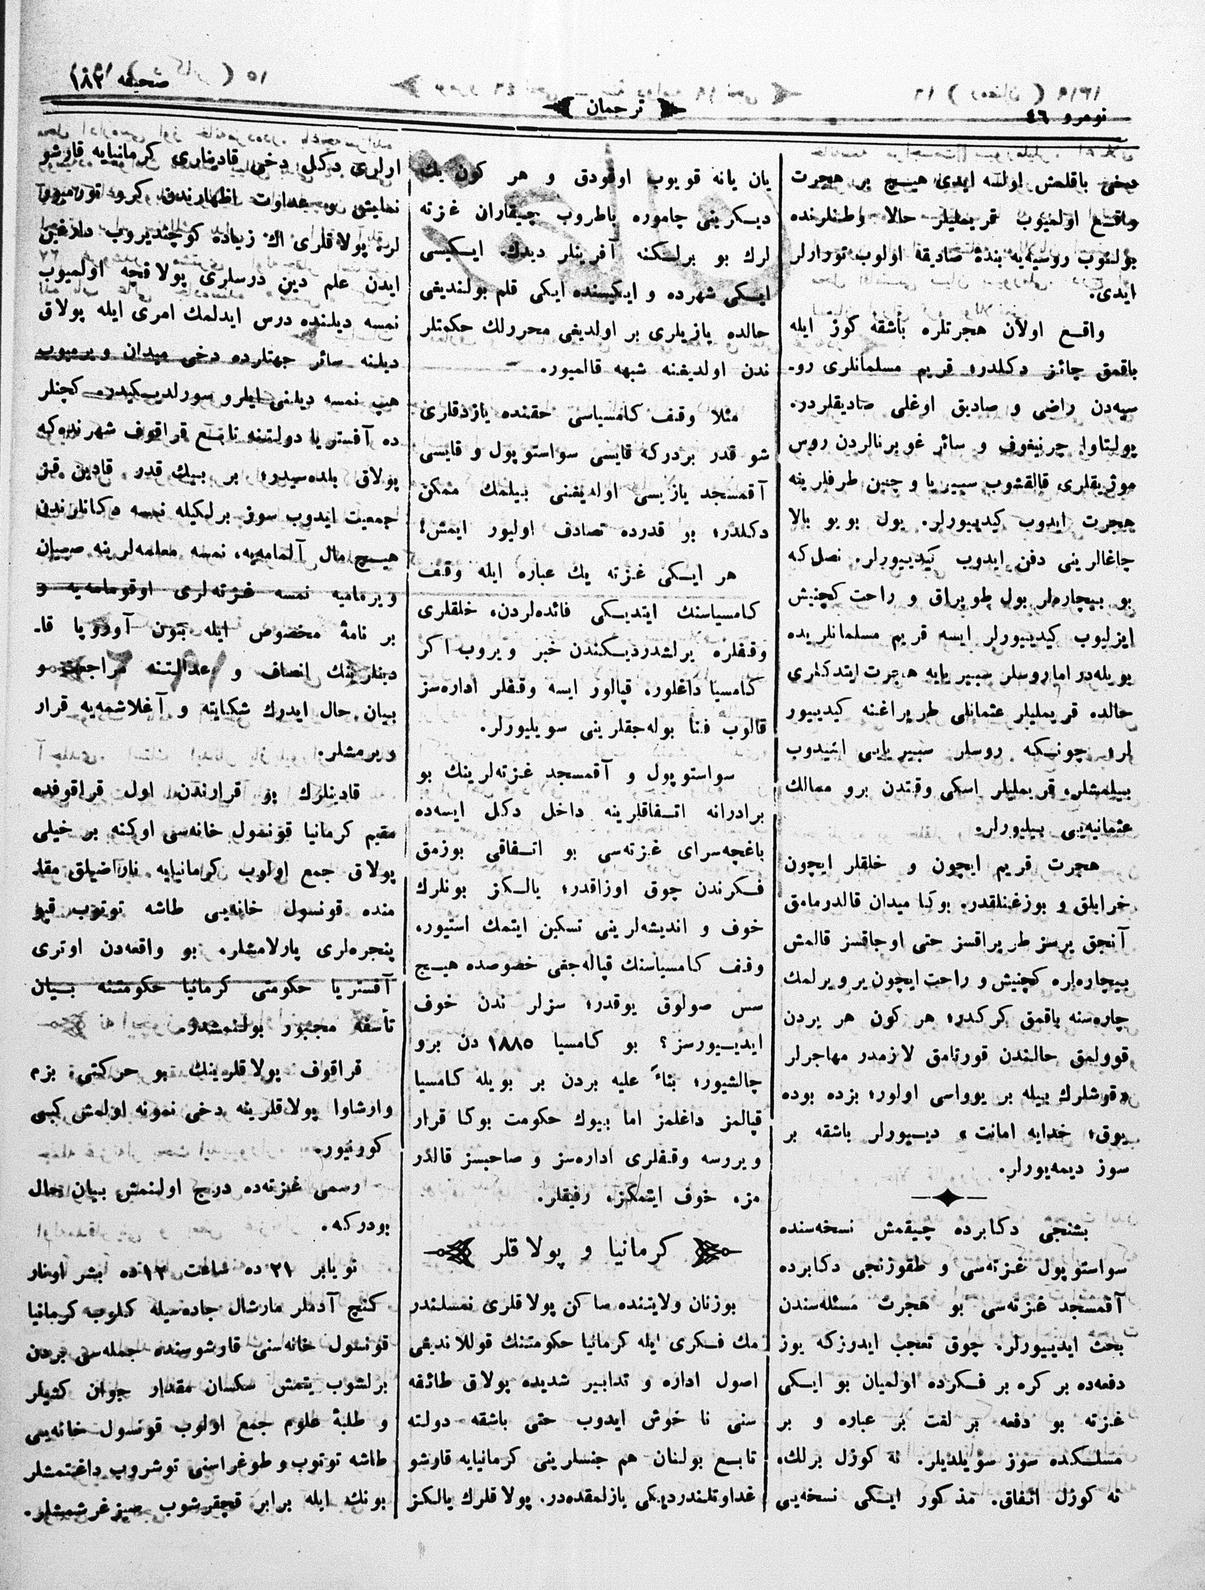 نومرو ٤٦
ترجمان
صحیفه ١٨٢
دخی باقلمش اولسه ایدی هیچ بر هجرت
واقع اولمیوب قریملیلر حالا وطنلرنده
بولنوب روسیه‌یه بندهٔ صادیقه اولوب تورارلر
ایدی.
واقع اولان هجرتلره باشقه کوز ایله
باقمق جائز دکلدر؛ قریم مسلمانلری رو-
سیه‌دن راضی و صادیق اوغلی صادیقلردر.
پولتاوا چرنیغوف و سائر غوبرنالردن روس
موژیقلری قالقشوب سیبریا و چین طرفلرینه
هجرت ایدوب کیدیورلر. یول بویو بالا
چاغالرینی دفن ایدوب کیدییورلر. نصل‌که
بو بیچاره‌لر بول طوپراق و راحت کچنیش
ایزلیوب کیدییورلر ایسه قریم مسلمانلریده
بویله‌در اما روسلر سیبریایه هجرت ایتدکلری
حالده قریملیلر عثمانلی طوپراغنه کیدییور
لر، چونکه روسلر سیبریایی ایشیدوب
بیلمشلر، قریملیلر اسکی وقتدن برو ممالك
عثمانیه‌یی بیلیورلر.
هجرت قریم ایچون و خلقلر ایچون
خرابلق و بوزغنلقدر. بوکا میدان قالدرمامق
آنجق یرسز طوپراقسز حتی اوجاقسز قالمش
بیچاره‌لره کچنیش و راحت ایچون یر ویرلمك
چاره‌سنه باقمق کرکدر؛ هر کون هر یردن
قوولمق حالندن قورتامق لازمدر مهاجرلر
«قوشلرك بیله بر یوواسی اولور؛ بزده بوده
یوق؛ خدایه امانت» دیییورلر باشقه بر
سوز دیمه‌یورلر.
بشنجی دکابرده چیقمش نسخه‌سنده
سواستوپول غزته‌سی و طقوزنجی دکابرده
آقمسجد غزته‌سی بو هجرت مسئله‌سندن
بحث ایدییورلر. چوق تعجب ایدرزکه یوز
دفعه‌ده بر کره بر فکرده اولمیان بو ایکی
غزته بو دفعه بر لغت بر عباره و بر
مسلکده سوز سویلدیلر. نه کوزل برلك،
نه کوزل اتفاق. مذکور ایکی نسخه‌یی
یان یانه قویوب اوقودق و هر کون یك
دیکرینی چاموره یاطروب چیقاران غزته
لرك بو برلکنه آفرینلر دیدك. ایکیسی
ایکی شهرده و ایکیسنده ایکی قلم بولندیغی
حالده یازیلری بر اولدیغی محررلك حکمتلر
ندن اولدیغنه شبهه قالمیور.
مثلا وقف کامسیاسی حقنده یازدقلری
شو قدر بردرکه قایسی سواستوپول و قایسی
آقمسجد یازیسی اولدیغنی بیلمك ممکن
دکلدر؛ بو قدرده تصادف اولیور ایمش!
هر ایکی غزته یك عباره ایله وقف
کامسیاسنك ایتدیکی فائده‌لردن، خلقلری
وقفلره برلشدردیکندن خبر ویروب اکر
کامسیا داغلور، قپالور ایسه وقفلر اداره‌سز
قالوب فنا بوله‌جقلرینی سویلیورلر.
سواستوپول و آقمسجد غزته‌لرینك بو
برادرانه اتفاقلرینه داخل دکل ایسه‌ده
باغچه‌سرای غزته‌سی بو اتفاقی بوزمق
فکرندن چوق اوزاقدر؛ یالکز بونلرك
خوف و اندیشه‌لرینی تسکین ایتمك استیور.
وقف کامسیاسنك قپاله‌جغی خصوصده هیچ
سس صولوق یوقدر؛ سزلر ندن خوف
ایدییورسز؟ بو کامسیا ١٨٨٥ دن برو
چالشیور؛ بناءً علیه بردن بر بویله کامسیا
قپالمز داغلمز اما بیوك حکومت بوکا قرار
ویررسه وقفلری اداره‌سز و صاحبسز قالدر
مز، خوف ایتمکز، رفیقلر.
کرمانیا و پولاقلر
بوزنان ولایتنده ساکن پولاقلری نمسلندر
مك فکری ایله کرمانیا حکومتنك قوللاندیغی
اصول اداره و تدابیر شدیده پولاق طائفه
سنی نا خوش ایدوب حتی باشقه دولته
تابع بولنان هم جنسلرینی کرمانیایه قارشو
عداوتلندردیکی یازلمقده‌در. پولاقلرك یالکز
اولری دکل دخی قادینلری کرمانیایه قارشو
نمایش و عداوت اظهارندن کرو تورمیور
لر. پولاقلری اك زیاده کوچندیروب دلغین
ایدن علم دین درسلری پولاقچه اولمیوب
نمسه دیلنده درس ایدلمك امری ایله پولاق
دیلنه سائر جهتلرده دخی میدان ویرمیوب
هپ نمسه دیلنی ایلرو سورلدیکیدر. کچنلر
ده آفستریا دولتنه تابع قراقوف شهرنده‌که
پولاق بلده‌سیدر؛ بر بیك قدر قادین قیز
جمعیت ایدوب سوز برلکیله نمسه دکانلرندن
هیچ مال آلمامه‌یه، نمسه معلمه‌لرینه صبیان
ویرمامیه نمسه غزته‌لری اوقومامه‌یه و
بر نامهٔ مخصوص ایله بتون آوروپا قا-
دینلرینك انصاف و عدالتنه مراجعت و
بیان حال ایدرك شکایته و آغلاشمه‌یه قرار
ویرمشلر.
قادینلرك بو قرارندن اول قراقوفده
مقیم کرمانیا قونسول خانه‌سی اوکنه بر خیلی
پولاق جمع اولوب کرمانیایه ناراضیلق مقا
منده قونسول خانه‌یی طاشه توتوب قپو
پنجره‌لری پارلامشلر. بو واقعه‌دن اوتری
آفستریا حکومتی کرمانیا حکومتنه بیان
تأسفه مجبور بولنمشدر.
قراقوف پولاقلرینك بو حرکتی، بزم
وارشاوا پولاقلرینه دخی نمونه اولمش کبی
کورنیور.
رسمی غزته‌ده درج اولنمش بیان حال
بودرکه.
نویابر ٢١ ده ساعت ١٢ ده بشر اونار
کنج آدملر مارشال جاده‌سیله کلوب کرمانیا
قونسول خانه‌سی قارشوسنده جمله‌سی بردن
برلشوب یتمش سکسان مقدار جوان کشیلر
و طلبهٔ علوم جمع اولوب قونسول خانه‌یی
طاشه توتوب و طوغراسنی توشروب داغتمشلر
بونك ایله برابر قچقرشوب سیزغرشمشلر.